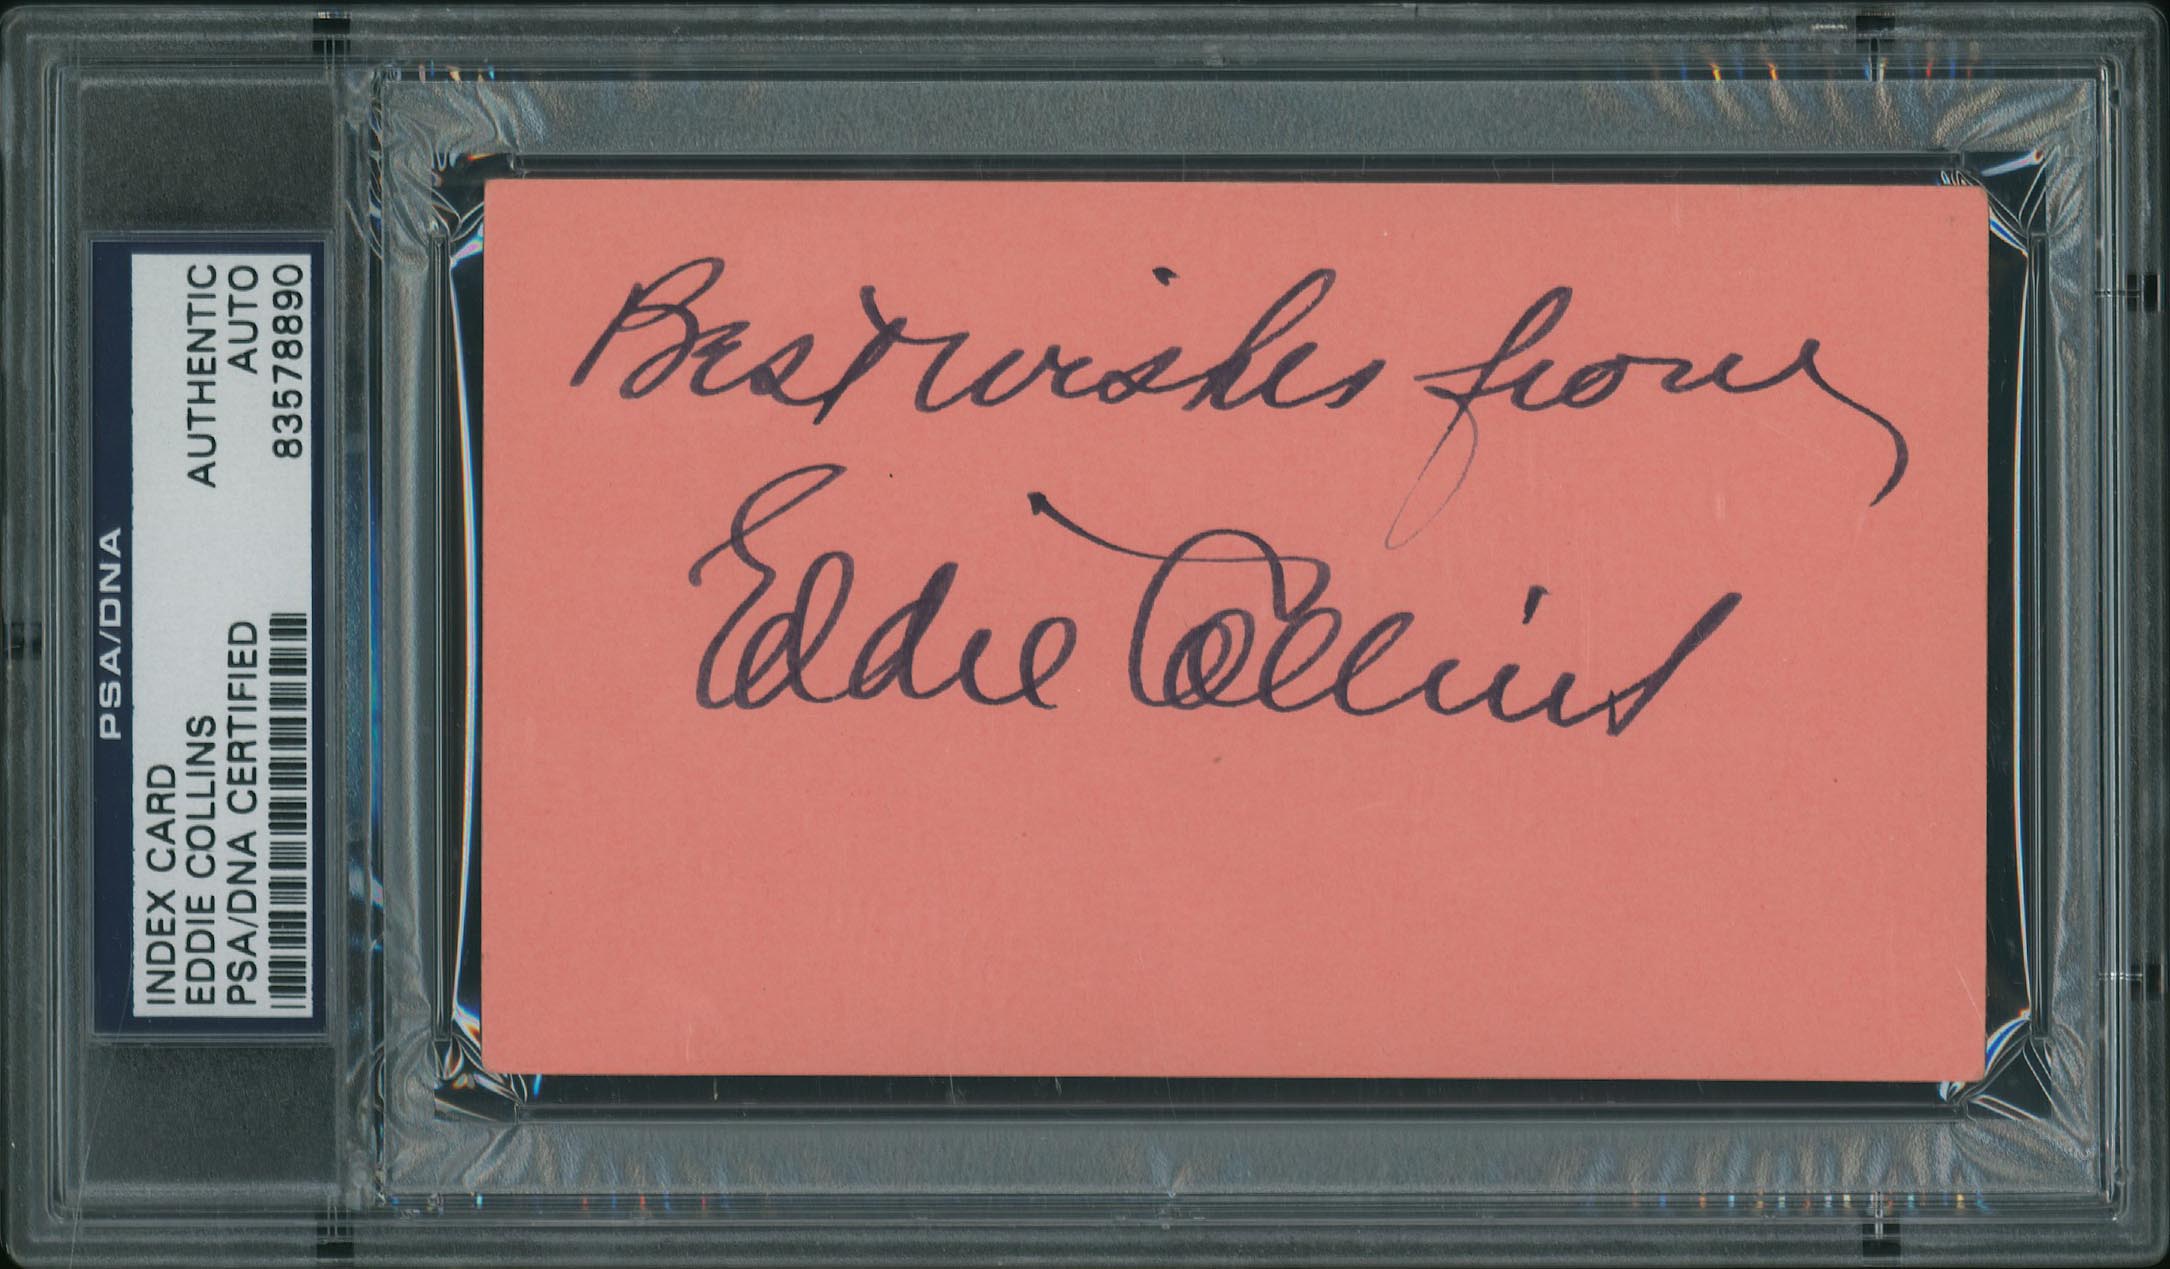 PSA/DNA
INDEX CARD
EDDIE COLLINS
PSA/DNA CERTIFIED
AUTHENTIC
AUTO
83578890
Best wishes from
Eddie Collins